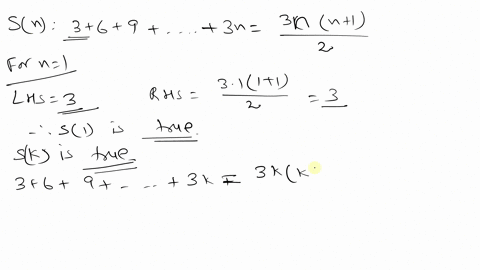 S(n): 3+6+9+.....+3n = 3n(n+1)/2
For n=1
LHS = 3 RHS = 3·1(1+1)/2 = 3
∴ S(1) is true.
S(k) is true
3+6+9+.....+3k = 3k(k